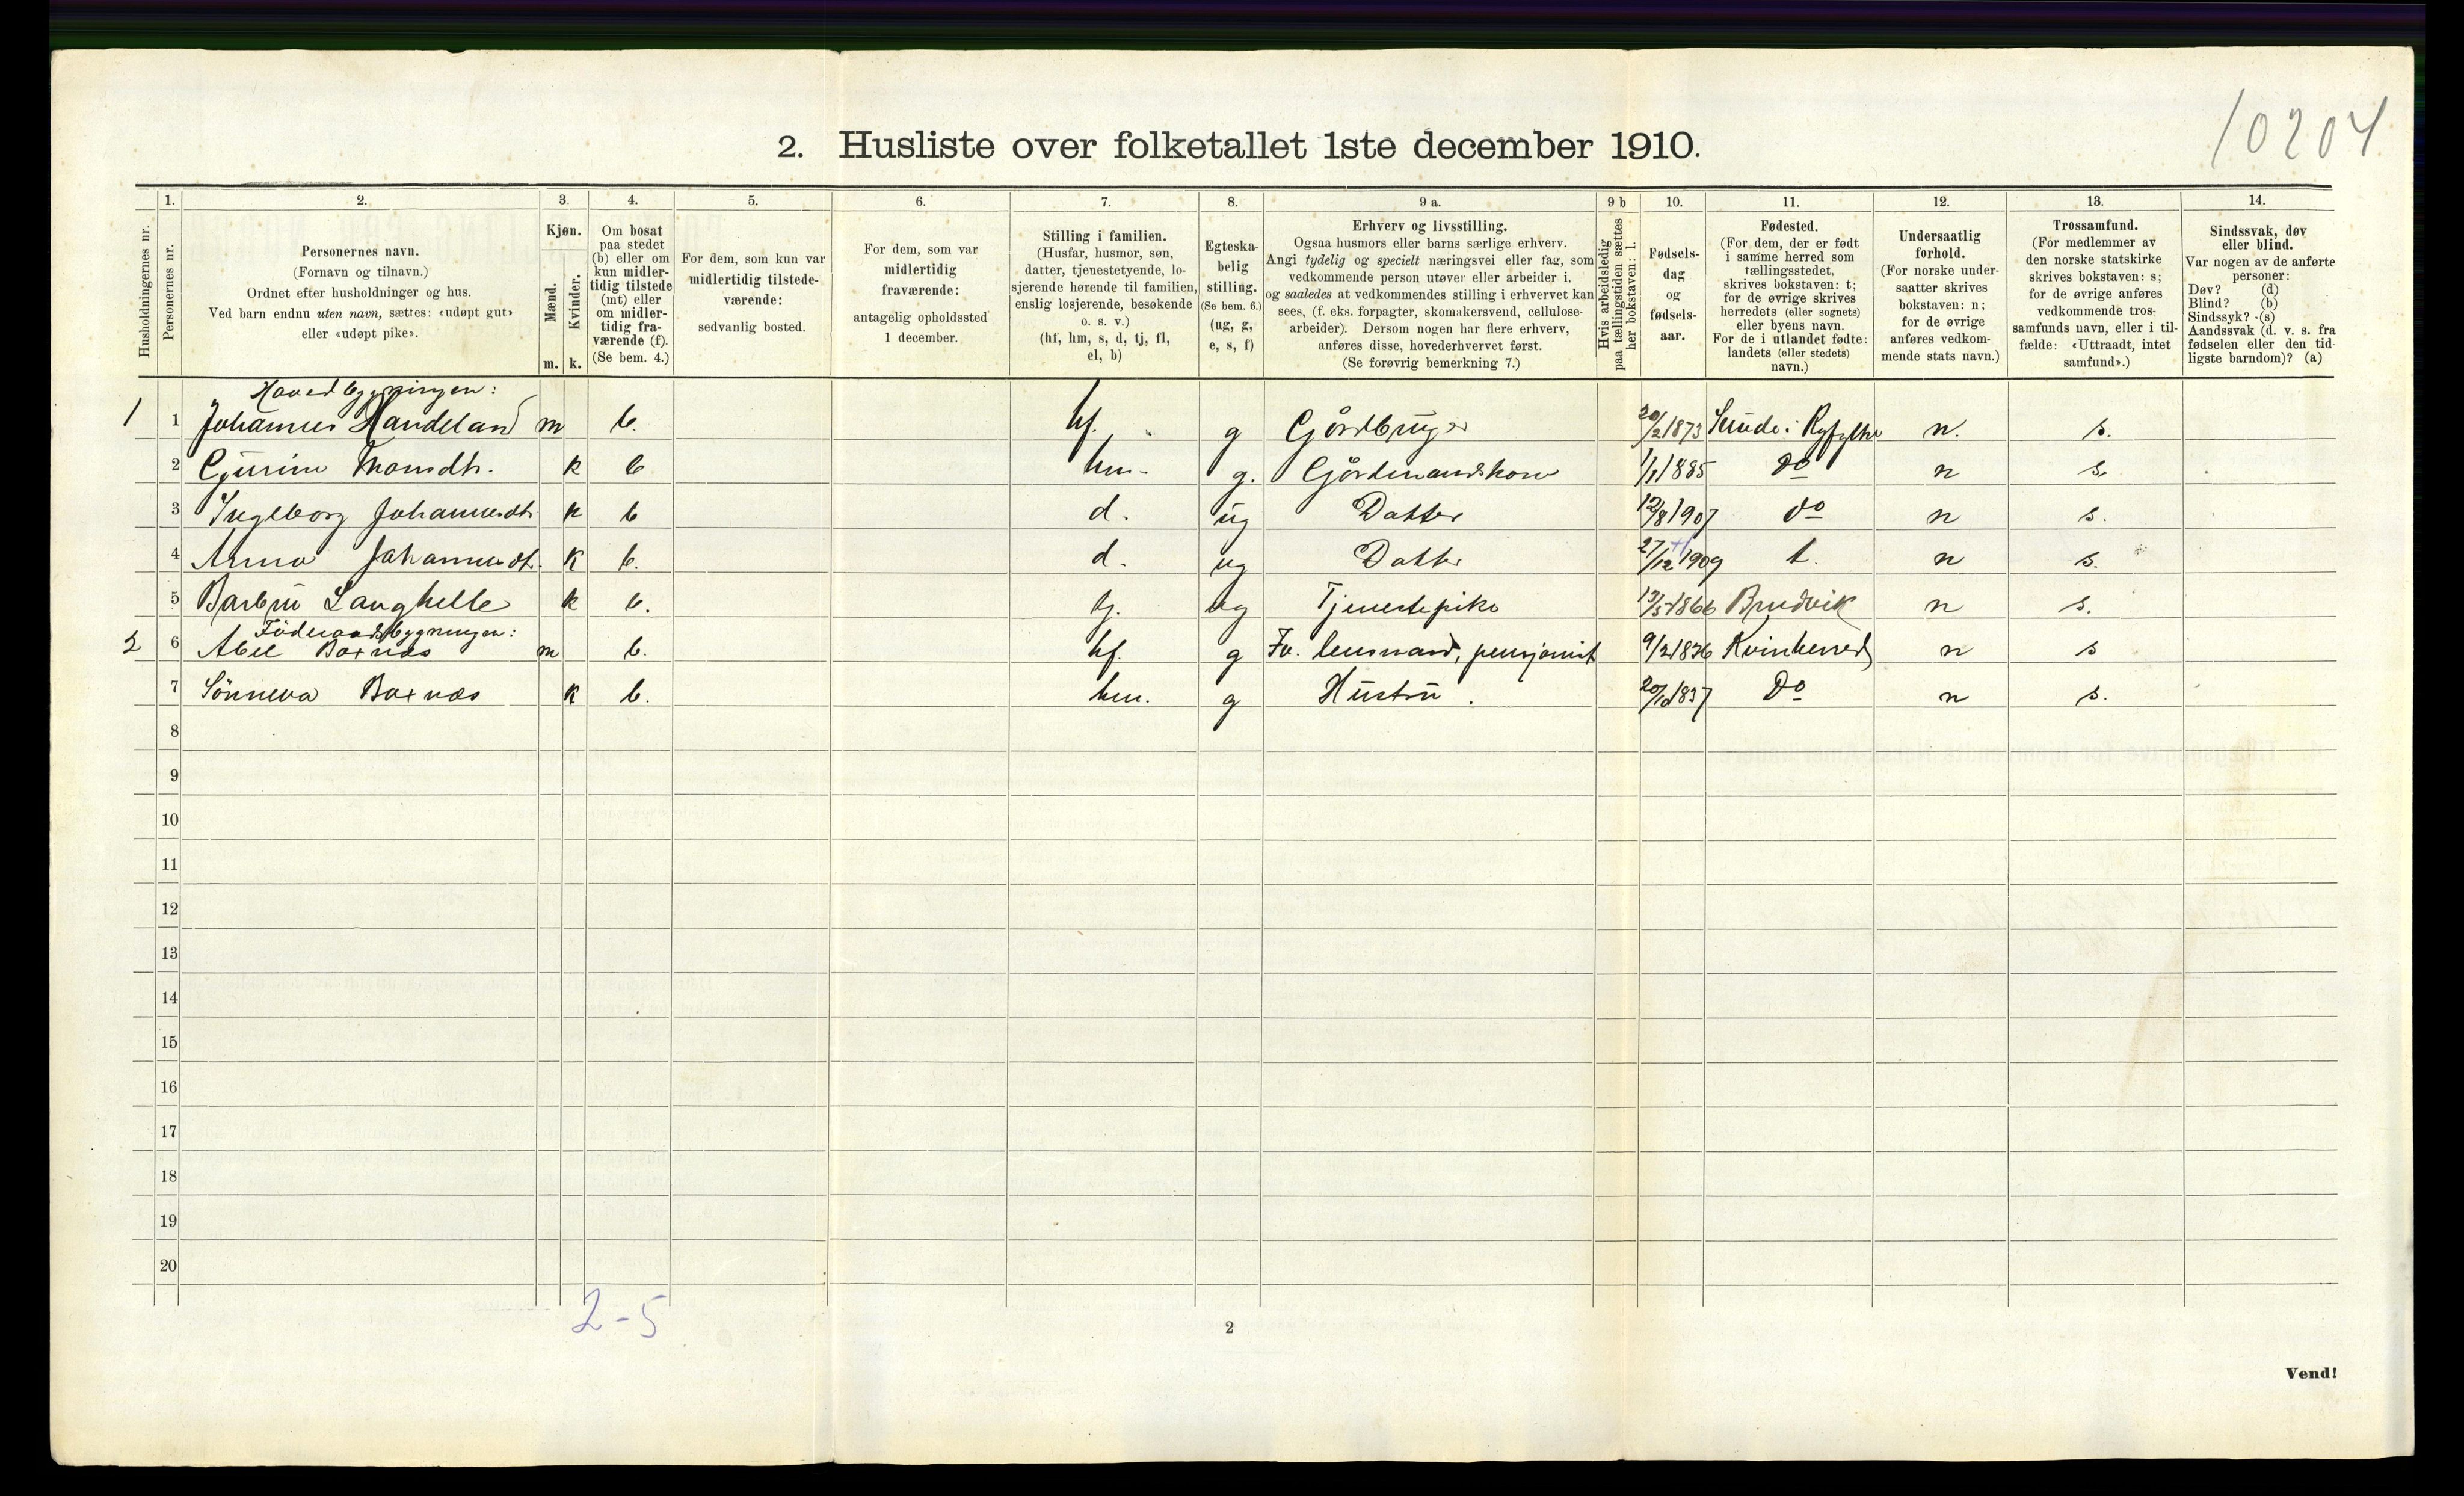 10204
2. Husliste over folketallet 1ste december 1910.
Husholdningernes nr.
1.
Personernes nr.
2.
Personernes navn.
(Fornavn og tilnavn.)
Ordnet efter husholdninger og hus.
Ved barn endnu uten navn, sættes: «udøpt gut»
eller «udøpt pike».
3.
Kjøn.
Mænd.
Kvinder.
m. k.
4.
Om bosat
paa stedet
(b) eller om
kun midler-
tidig tilstede
(mt) eller
om midler-
tidig fra-
værende (f).
(Se bem. 4.)
5.
For dem, som kun var
midlertidig tilstede-
værende:
sedvanlig bosted.
6.
For dem, som var
midlertidig
fraværende:
antagelig opholdssted
1 december.
7.
Stilling i familien.
(Husfar, husmor, søn,
datter, tjenestetyende, lo-
sjerende hørende til familien,
enslig losjerende, besøkende
o. s. v.)
(hf, hm, s, d, tj, fl,
el, b)
8.
Egteska-
belig
stilling.
(Se bem. 6.)
(ug, g,
e, s, f)
9 a.
Erhverv og livsstilling.
Ogsaa husmors eller barns særlige erhverv.
Angi tydelig og specielt næringsvei eller fag, som
vedkommende person utøver eller arbeider i,
og saaledes at vedkommendes stilling i erhvervet kan
sees, (f. eks. forpagter, skomakersvend, cellulose-
arbeider). Dersom nogen har flere erhverv,
anføres disse, hovederhvervet først.
(Se forøvrig bemerkning 7.)
9 b
Hvis arbeidsledig
paa tællingstiden sættes
her bokstaven: l.
10.
Fødsels-
dag
og
fødsels-
aar.
11.
Fødested.
(For dem, der er født
i samme herred som
tællingsstedet,
skrives bokstaven: t;
for de øvrige skrives
herredets (eller sognets)
eller byens navn.
For de i utlandet fødte:
landets (eller stedets)
navn.)
12.
Undersaatlig
forhold.
(For norske under-
saatter skrives
bokstaven: n;
for de øvrige
anføres vedkom-
mende stats navn.)
13.
Trossamfund.
(For medlemmer av
den norske statskirke
skrives bokstaven: s;
for de øvrige anføres
vedkommende tros-
samfunds navn, eller i til-
fælde: «Uttraadt, intet
samfund».)
14.
Sindssvak, døv
eller blind.
Var nogen av de anførte
personer:
Døv? (d)
Blind? (b)
Sindssyk? (s)
Aandssvak (d. v. s. fra
fødselen eller den tid-
ligste barndom)? (a)
Hovedbygningen:
1 1 Johannes Handeland m b. hf. g Gårdbruger 20/2 1873 Suude i Ryfylke n. s.
2 Gjurine k b hm. g. Gårdmandskone 1/1 1885 Do n s.
3 Ingeborg Johannesdtr k b d. ug Datter 12/8 1907 do n s.
4 Anna Johannesdtr. k b. d. ug Datter 27/12 1909 t. n s.
5 Langhelle k b. tj. ug Tjenestepike 13/5 1866 Bruvik n s.
Føderaadsbygningen:
2 6 Abel Boxnæs m b. hf. g Fv. lensmand, pensjonist 9/2 1836 Kvinherred n s
7 Sønneva Boxnæs k b. hm. g Hustru. 20/10 1837 Do n s.
8
9
10
11
12
13
14
15
16
17
18
19
20
2-5
2
Vend!